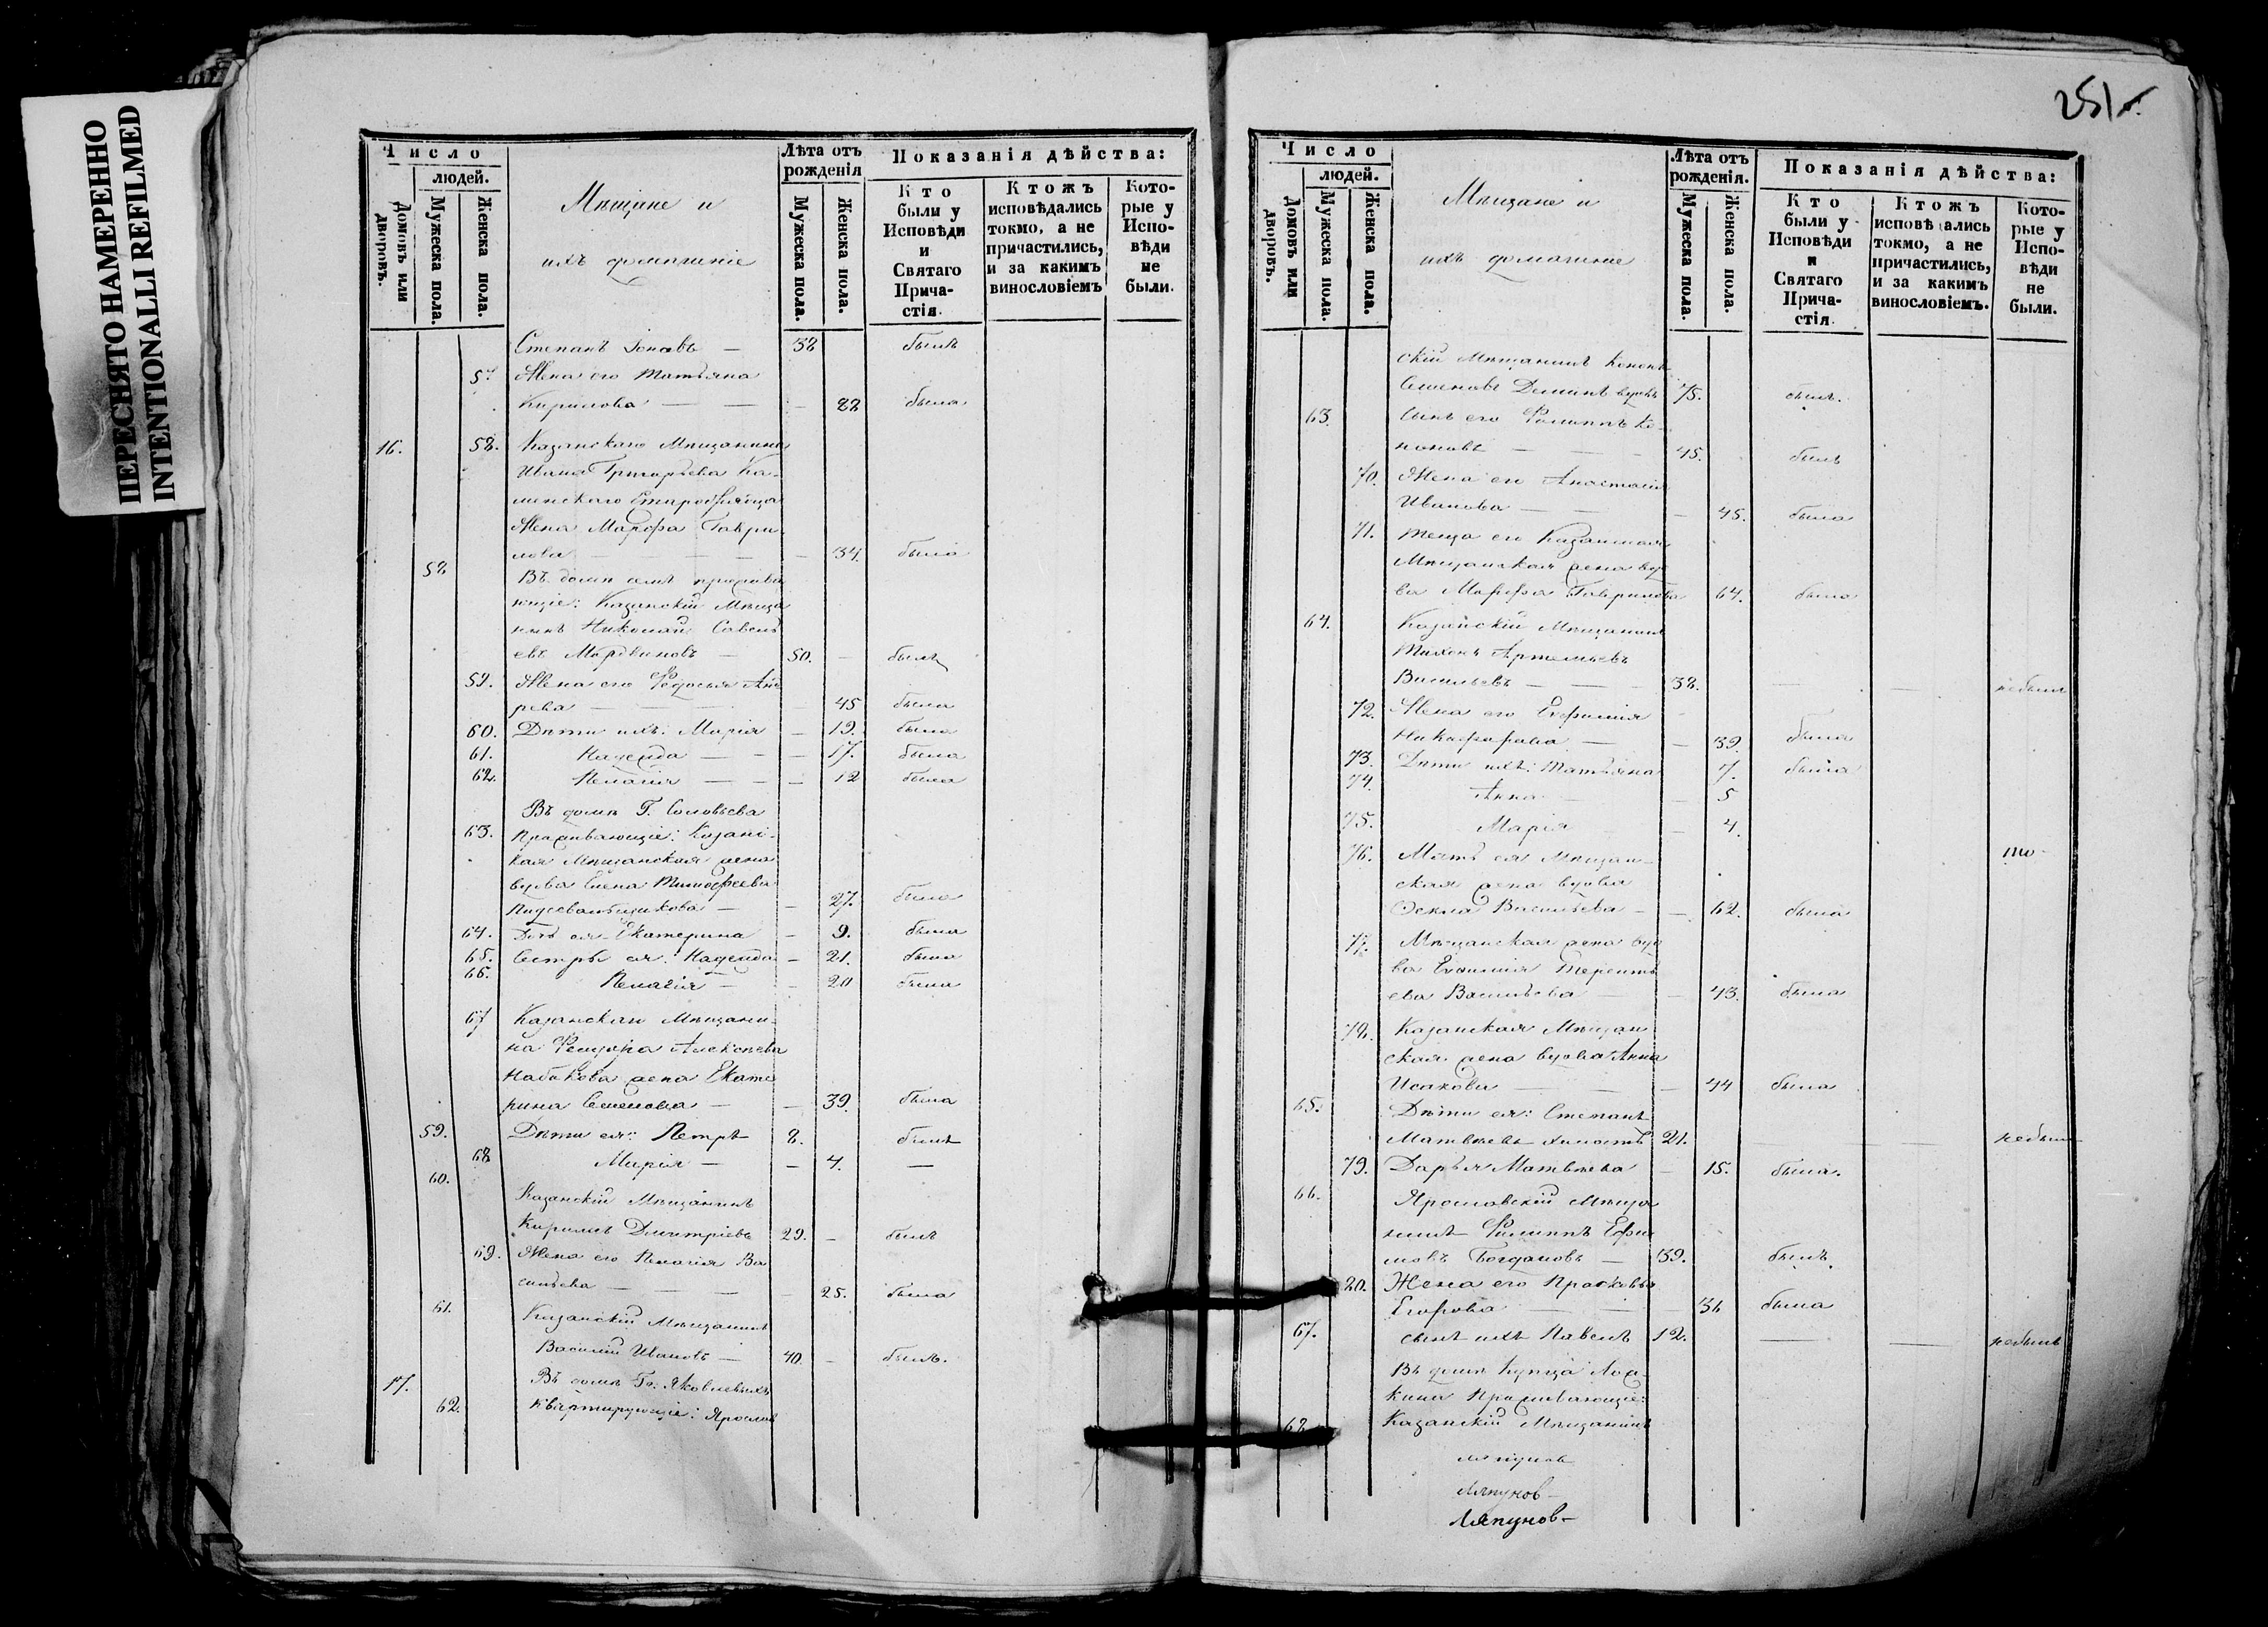 ПЕРЕСНЯТО НАМЕРЕННО
INTENTIONALLI REFILMED
Число
людей.
Домовъ или дворовъ.
Мужеска пола.
Женска пола.
Мѣщане и
ихъ домашніе
Лѣта отъ рожденія
Мужеска пола.
Женска пола.
Показанія дѣйства:
Кто были у Исповѣди и Святаго Прича-стія.
Ктожъ исповѣдались токмо, а не причастились, и за какимъ винословіемъ
Кото-рые у Испо-вѣди не были.
Степанъ Іоновъ — 38 былъ
57 Жена его Татьяна
Кирилова — — — 28 была
16. 58. Казанскаго Мѣщанина
Ивана Григорьева Ка-
менскаго
Жена Марфа Гаври-
лова — — — 34. была
58 Въ домѣ семъ прожива
ющіе: Казанскій Мѣща
нинъ Николай Савель
евъ — 50. — былъ
59. Жена его Федосья Анд
рева — 45 была
60. Дѣти ихъ: Марія — 19. была
61. Надежда — — 17. была
62. Пелагія — — — 12 была
Въ домѣ Г. Соловьева
63. Проживающіе: Казан-
кая Мѣщанская жена
вдова Елена Тимофеева
— — 27. была
64. Дочь ея Екатерина — 9. была
65. Сестры ея: Надежда — 21. была
66. Пелагія — — 20 была
67 Казанскаго Мѣщани-
на Федора Алексѣева
Набокова жена Екате
рина Семенова — — 39. была
59. Дѣти ея: Петръ 8. былъ
68 Марія — — 4. —
60. Казанскій Мѣщанинъ
Кирилъ Дмитріевъ 29. — былъ
69. Жена его Пелагія Ва
сильева — — — 25. была
61. Казанскій Мѣщанинъ
Василій Ивановъ — 40. — былъ.
17. Въ домѣ Гг. Яковлевыхъ
62. квартирующіе: Ярослав
251
Число
людей.
Домовъ или дворовъ.
Мужеска пола.
Женска пола.
Мѣщане и
ихъ домашніе
Лѣта отъ рожденія.
Мужеска пола.
Женска пола.
Показанія дѣйства:
Кто были у Исповѣди и Святаго Прича-стія.
Ктожъ исповѣдались токмо, а не причастились, и за какимъ винословіемъ.
Кото-рые у Испо-вѣди не были.
скій Мѣщанинъ Кононъ
Семеновъ Деминъ вдовъ 75. былъ.
63. Сынъ его Филиппъ Ко-
ноновъ — — — 45. былъ
70. Жена его Анастасія
Иванова — — — 45. была
71. Теща его Казанская
Мѣщанская жена вдо
ва Марфа Гаврилова 64. была
64. Казанскій Мѣщанинъ
Тихонъ Артемьевъ
Васильевъ — — — 38. — — небылъ
72. Жена его Евфимія
Никифорова — — 39. была
73. Дѣти ихъ: Татьяна 7. была
74. Анна — — 5
75. Марія — 4.
76. Мать ея Мѣщан- то-
ская жена вдова
Васильева — — 62. была
77. Мѣщанская жена вдо
ва Евфимія Терентье
ева Васильева — — 43. была
78. Казанская Мѣщан
ская жена вдова Анна
Исакова — — — 44 была
65. Дѣти ея: Степанъ
Матвѣевъ холостъ 21. — — небылъ
79. Дарья Матвѣева — 15. была.
66. Ярославскій Мѣща
нинъ Филиппъ Ефи
мовъ Богдановъ — 39. былъ.
80. Жена его Прасковья
Егорова — — — 36 была
67. сынъ ихъ Павелъ 12. — — небылъ
Въ домѣ купца
кина Проживающіе:
68. Казанскій Мѣщанинъ
Ляпунов-
Ляпунов-